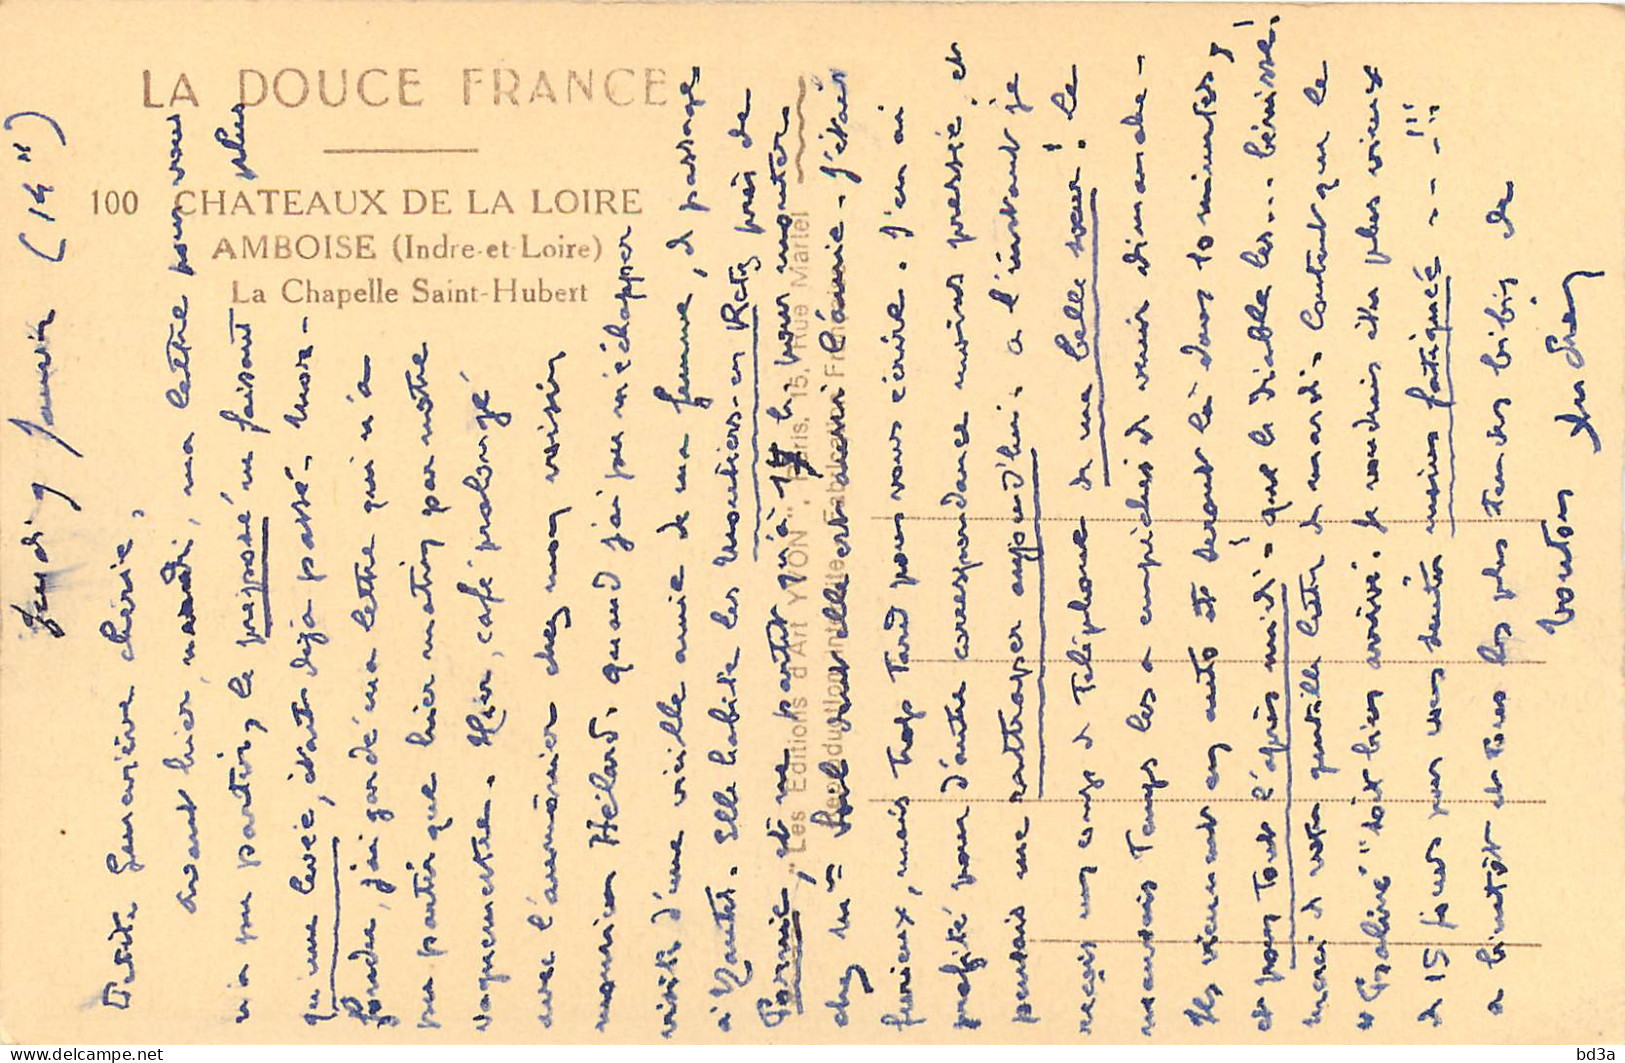 LA DOUCE FRANCE
100 CHATEAUX DE LA LOIRE
AMBOISE (Indre-et-Loire)
La Chapelle Saint-Hubert
"Les Editions d'Art YVON", Paris, 15, Rue Martel
Reproduction Interdite Fabrication
Jeudi 9 Janvier (14")
Petite Geneviève chérie,
avant hier, mardi, ma lettre pour vous
n'a pu partir, le preposé ne faisant plus
qu'une levée, étant déjà passé.
j'ai gardé ma lettre qui n'a
pu partir que hier matin par notre
vaguemestre. Hier, café prolongé
avec l'aumônier chez mon voisin
monsieur Hélard. quand j'ai pu m'échapper
visite d'une vieille amie de ma femme, de passage
à Nantes. Elle habite les Moutiers-en-Retz près de
Pornic, et ne partit qu'à 17 h. pour monter
chez sa l'amie. J'étais
furieux, mais trop tard pour vous écrire. J'en ai
profité pour d'autre correspondance moins pressée et
pensais me rattraper aujourd'hui. a l'instant je
reçois un coup de téléphone de ma belle sœur! Le
mauvais temps les a empêchés de venir dimanche-
Ils viennent en auto et seront là dans 10 minutes,
et pour tout l'après midi! que le diable les... bénisse!
merci de votre gentille lettre de mardi. Content que le
"soit bien arrivé. Je voudrais être plus vieux
de 15 jours pour vous sentir moins fatiguée - - -!!!
a bientôt et tous les plus tendres bibis de
votre vieux